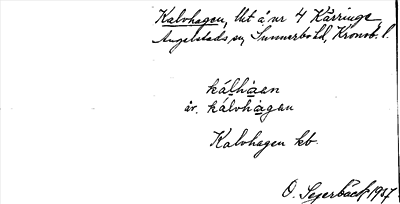 Kalvhagen, lht å nr 4 Käringe
Angelstads sn, Sunnerbo hd, Kronob. l.
kálhàan
äv. kálvhàgan
Kalvhagen kb.
O. Segerbäck 1937